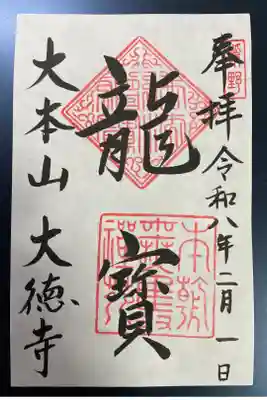 紫野
奉拝 令和八年二月一日
龍寶
大本山 大徳寺